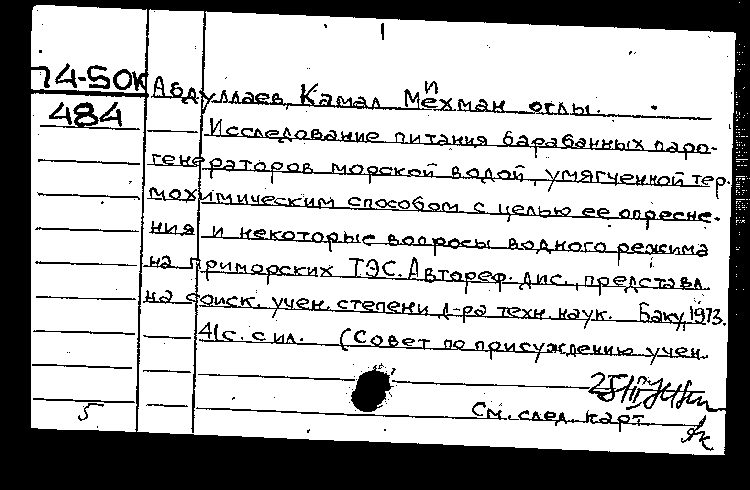 74-50К
484
Абдуллаев, Камал Мейхман оглы.
Исследование питания барабанных паро-
генераторов морской водой, умягченной тер-
мохимическим способом с целью ее опресне-
ния и некоторые вопросы водного режима
на приморских ТЭС. Автореф. дис., представл.
на соиск. учен. степени д-ра техн. наук. Баку, 1973.
41с. с ил. (Совет по присуждению учен.
25/III
См. след. карт.
5